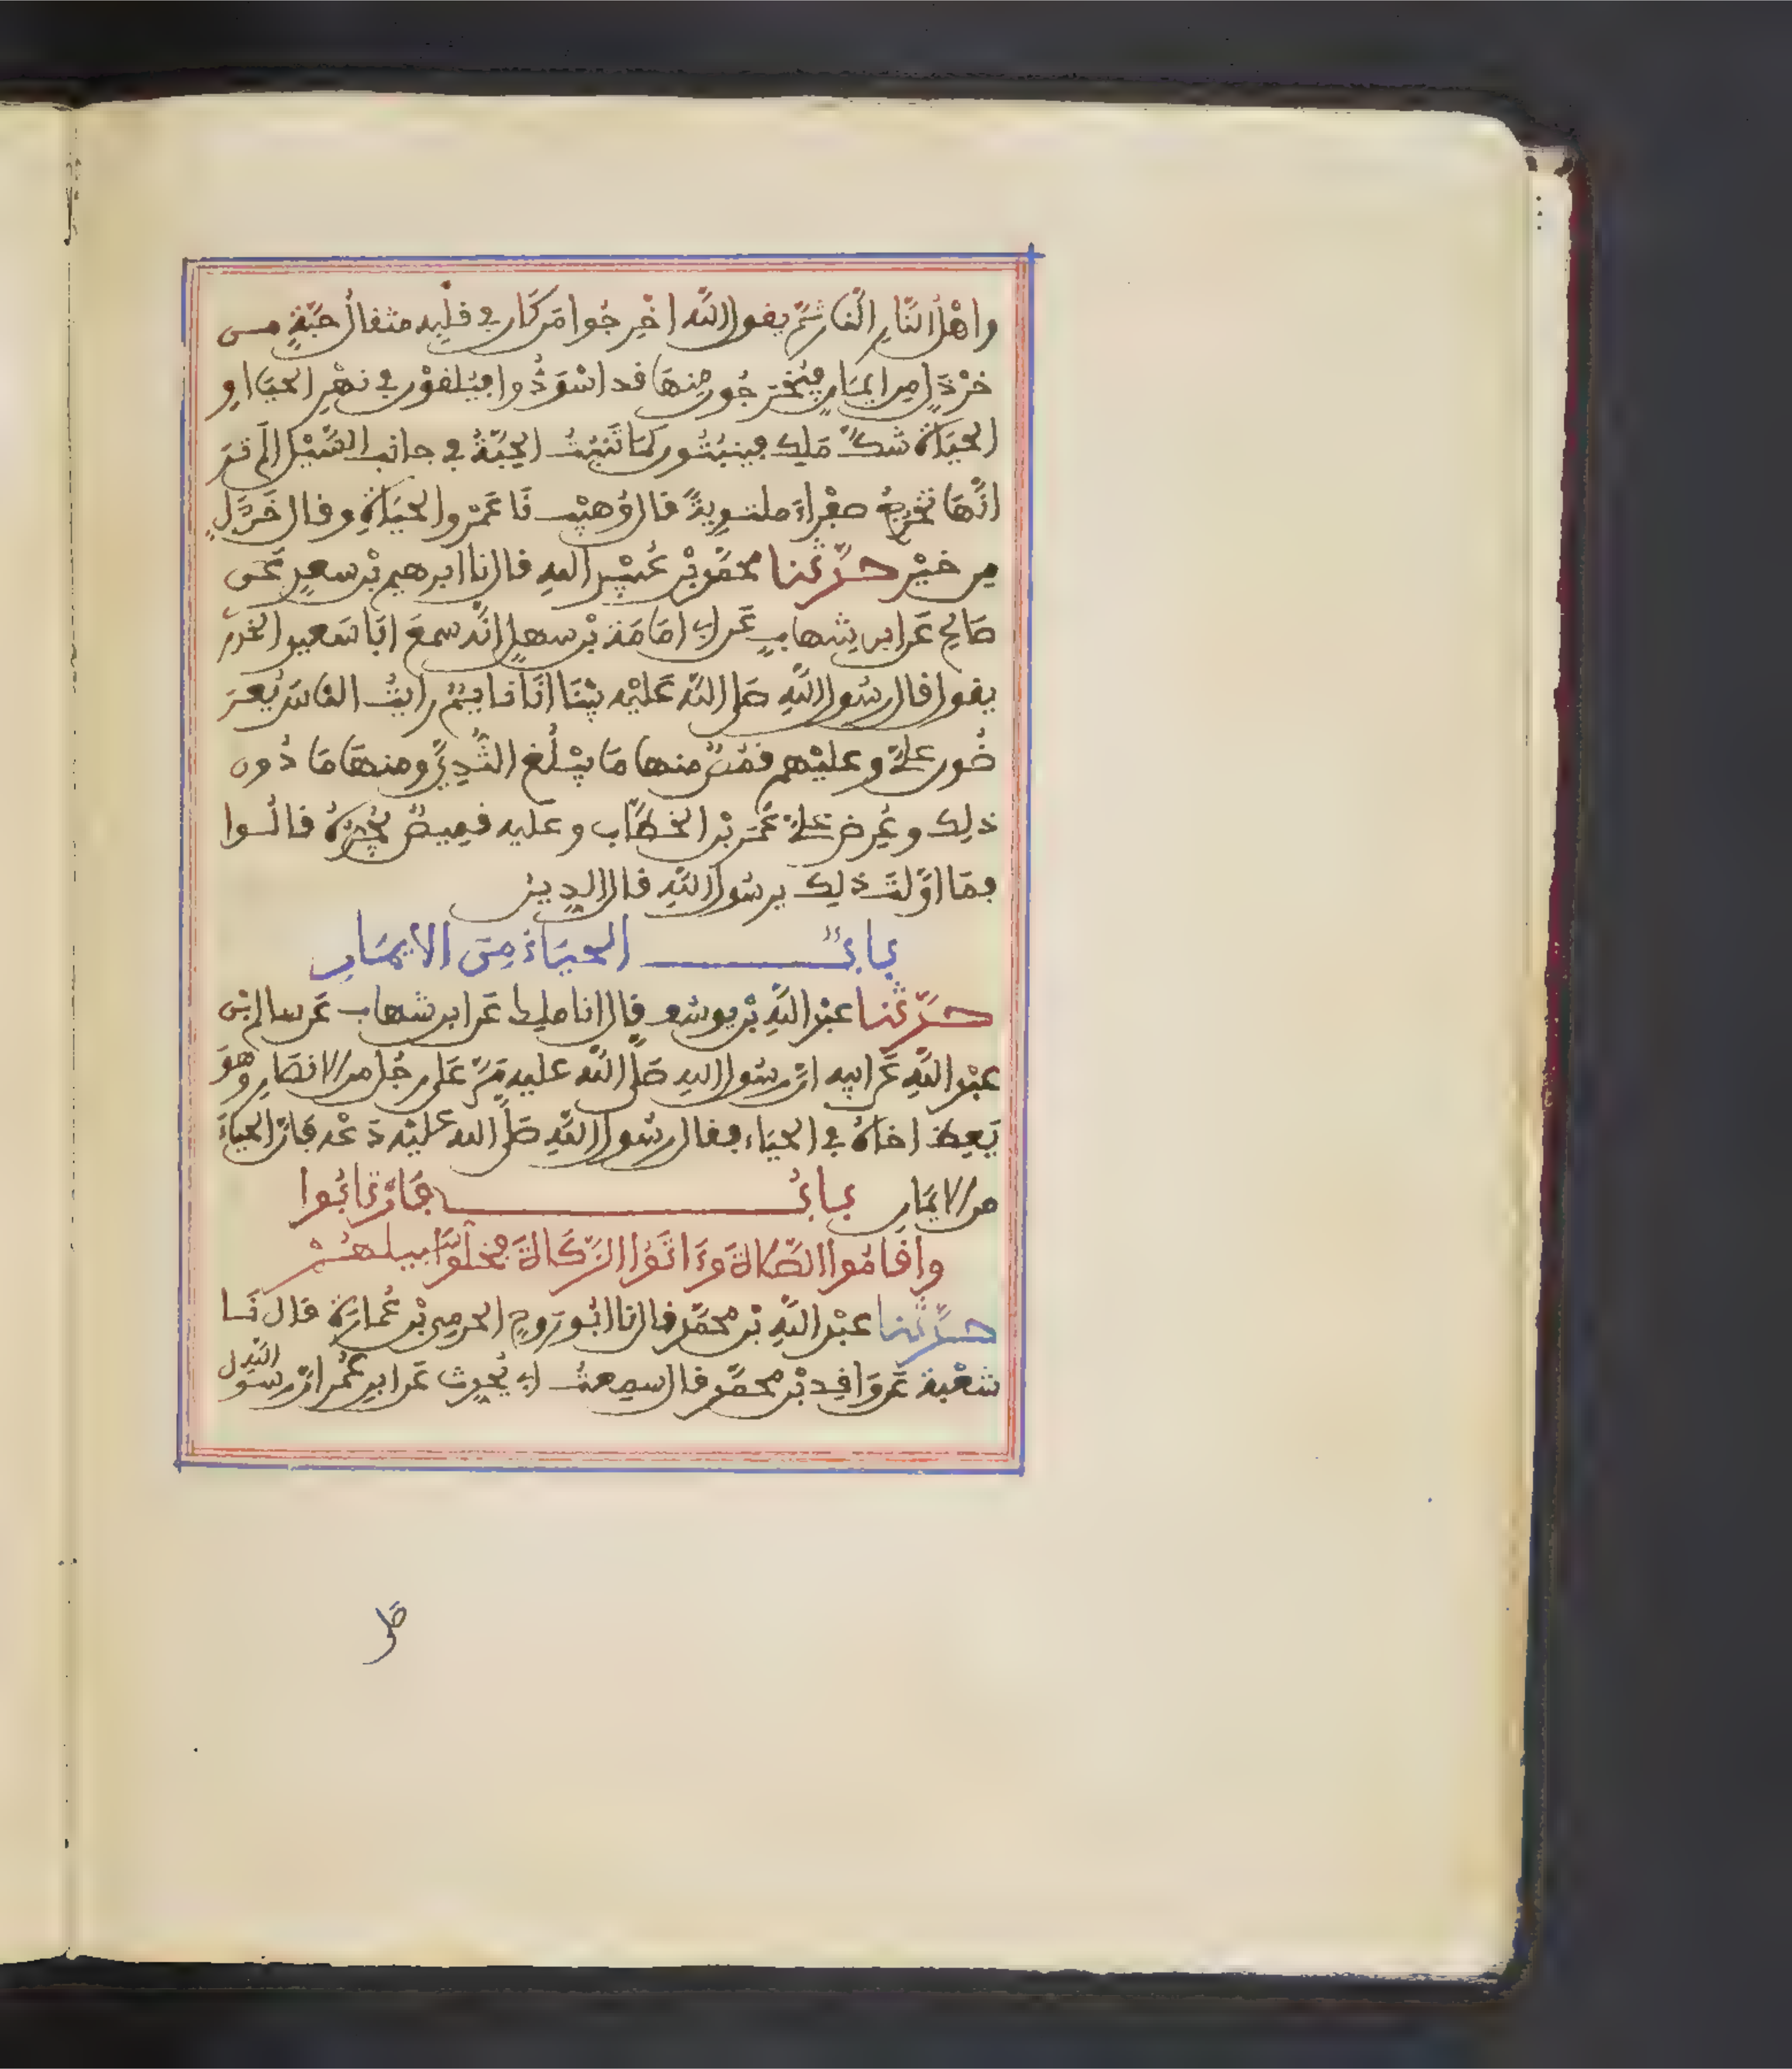 واهْلُ النَّارِ النَّارَ ثُمَّ يقول اللَّه اخْرِجُوا مَن كَان في قلبِه مثقالُ حَبَّةٍ مـن
خرْدَلٍ من ايمَانٍ فيُخْرَجُون مِنهَا قد اسْوَدُّوا فيُلقوْن في نهْرِ الحيَا او
الحيَاة شكَّ مَلِك فينبُتُون كمَا تَنبُتُ الحِبَّةُ في جانب السَّيْل الَم تـرَ
انَّهَا تخْرُجُ صفْراءَ ملتـوِيةً قال وُهيْب نَا عَمْرو الحيَاةِ وقال خَرْدَلٍ
من خيْر حدَّثنا محمَّد بْن عُبيْد الله قال نا ابرهيم بْن سعِيدٍ عَـن
صَالِح عَن ابن شهابٍ عَن ابي امَامَة بْن سهلٍ انَّه سمعَ ابَا سَعيد الخدرِيَّ
يقول قال رسُول اللَّهِ صَلى اللَّه عَليْه بيْنَا انَا نايمٌ رايتُ الناسَ يُعْرَ
ضُون علىَّ وعليْهم قمُصٌ منها مَا يبْلُغ الثُّدِيَّ ومنهَا مَا دُون
ذلك وعُرِضَ علىَّ عُمَر بْن الخطَّاب وعليه قميصٌ يجُرُّهُ قالُـوا
فمَا اوَّلتَ ذلِك يرسُول اللَّهِ قال الدِين
بابٌ الحيَاءُ مِنَ الايمَان
حدَّثنا عبْد اللَّهِ بْن يوسُف قال انا ملِك عَن ابن شهاب عَن سالم بْن
عبْد اللَّهِ عَن ابيه انَّ رسُول الله صَلى اللَّه عليه مَرَّ عَلى رجُل من الانصَارِ وهوَ
يَعِظُ اخاهُ في الحيَاء فقال رسُول اللَّهِ صَلى الله عليْه دَعْه فَانَّ الحيَاءَ
من الايمَان بابُ فَإن تَابُوا
واقَامُوا الصَّلاةَ وءَاتَوُا الزَّكَاةَ فخلُّوا سَبيلهـمْ
حدَّثنا عبْد اللَّهِ بْن محمَّد قال نا ابُو رَوحٍ الحرمِي بْن عُمارَة قال نَـا
شعْبة عَن وَاقِد بْن محمَّد قال سمِعتُ ابي يُحدِث عَن ابن عُمَر انَّ رسُول اللَّه
صَلى